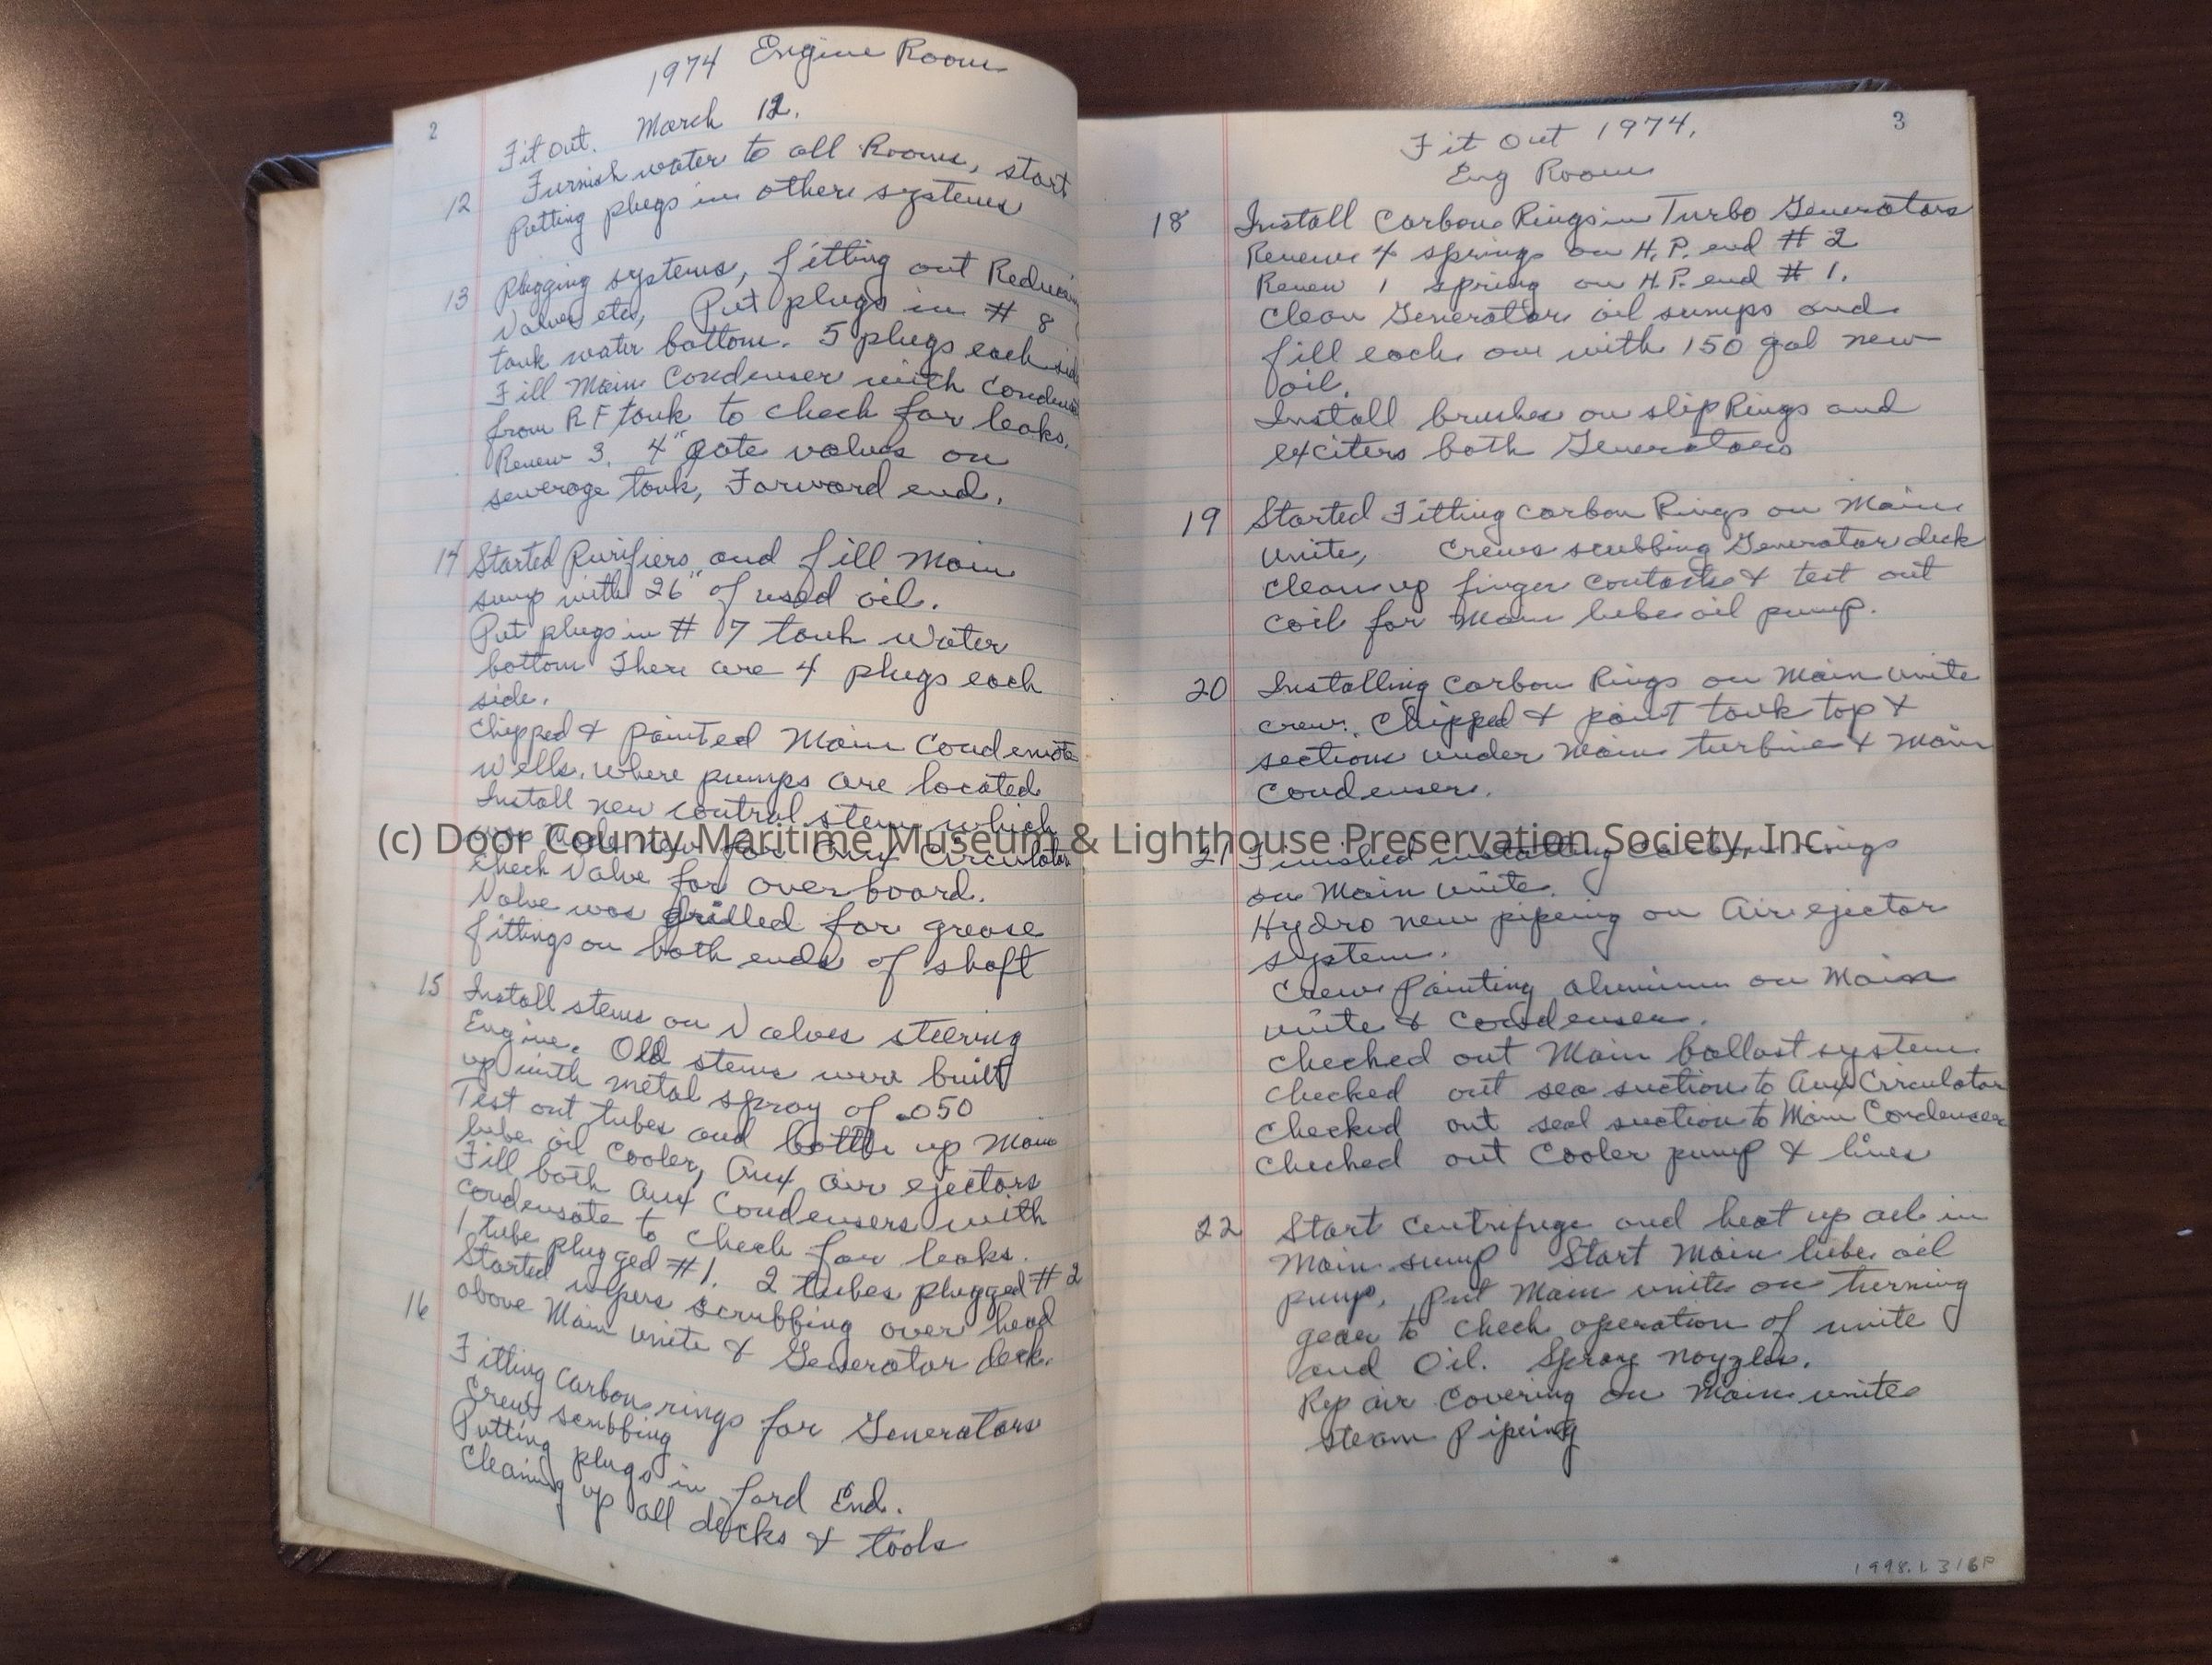 2
1974 Engine Room
Fit out. March 12.
12 Furnish water to all Rooms, start
Putting plugs in other systems
13 Plugging systems, fitting out Reducin
Valves etc, Put plugs in # 8
tank water bottom. 5 plugs each side
Fill Main Condenser with Conden
from R F tank to check for leaks.
Renew 3, 4" gate valves on
sewerage tank, Forward end.
14 Started Purifiers and fill Main
sump with 26" of used oil.
Put plugs in # 7 tank water
bottom There are 4 plugs each
side.
Chipped & painted Main Condensate
Wells. where pumps are located
Install new control stem which
was made new for Aux Circulator
check valve for overboard.
Valve was drilled for grease
fittings on both ends of shaft
15 Install stems on Valves steering
Engine. Old stems were built
up with metal spray of .050
Test out tubes and bottle up Main
lube oil Cooler, Aux air ejectors
Fill both Aux Condensers with
condensate to check for leaks.
1 tube plugged #1. 2 tubes plugged #2
Started wipers scrubbing over head
16 above Main unite & Generator deck.
Fitting Carbon rings for Generators
Crew scrubbing
Putting plugs in ford End.
Cleaning up all decks & tools
3
Fit Out 1974,
Eng Room
18 Install Carbon Rings in Turbo Generators
Renew 4 springs on H.P. end # 2
Renew 1 spring on H.P. end # 1.
Clean Generator oil sumps and
fill each one with 150 gal new
oil.
Install brushes on slip Rings and
exciters both Generators
19 Started Fitting carbon Rings on Main
Unite, Crews scubbing Generator deck
clean up finger contacts & test out
coil for Main lube oil pump.
20 Installing carbon Rings on Main unite
crew. Chipped & paint tank top &
sections under Main turbine & Main
Condenser.
21 Finished installing carbon rings
on Main Unite.
Hydro new pipeing on Air ejector
system.
Crew Painting aluminum on Main
unite & Condenser.
Checked out Main ballast system
Checked out sea suction to Aux Circulator
Checked out seal suction to Main Condenser
Checked out Cooler pump & lines
22 Start Centrifuge and heat up oil in
Main sump Start Main lube oil
pump, Put Main unite on turning
gear to check operation of unite
and Oil. Spray nozzles.
Repair Covering on Main unite
steam Pipeing
1998.1.316P
(c) Door County Maritime Museum & Lighthouse Preservation Society, Inc.